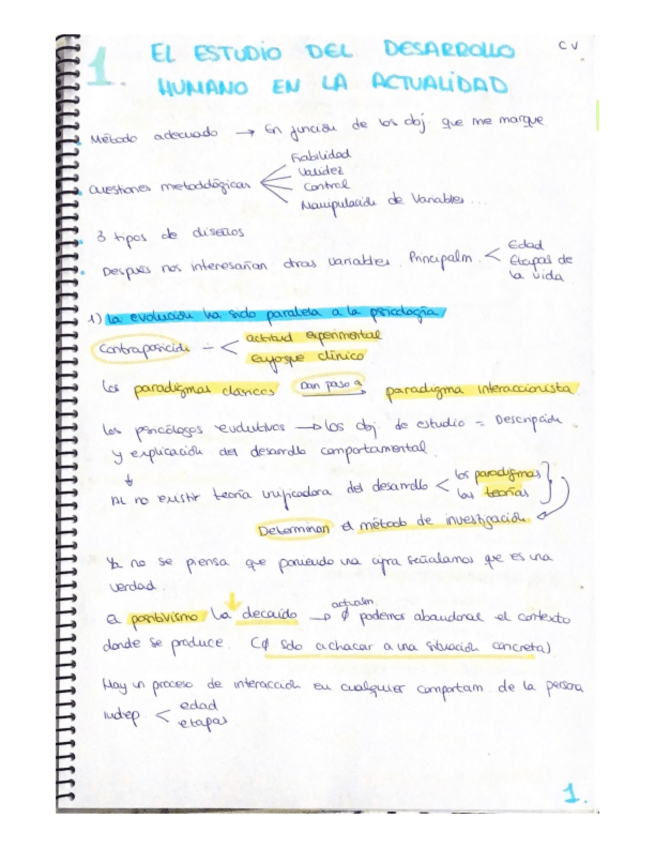 1. EL ESTUDIO DEL DESARROLLO
HUMANO EN LA ACTUALIDAD
CV
Método adecuado → En función de los obj. que me marque
Cuestiones metodológicas < Fiabilidad
Validez
Control
Manipulación de Variables...
3 tipos de diseños
Después nos interesarían otras variables. Principalm. < Edad
Etapas de
la vida
1) La evolución ha sido paralela a la psicología
Contraposición = < actitud experimental
enfoque clínico
Los paradigmas clásicos Dan paso a → paradigma interaccionista
Los psicólogos evolutivos → los obj. de estudio = Descripción
y explicación del desarrollo comportamental.
↓
AL no existir teoría unificadora del desarrollo < los paradigmas
las teorías
Determinan el método de investigación
Ya no se piensa que poniendo una cifra señalamos que es una
verdad.
El positivismo ha decaído → actualm ∅ podemos abandonar el contexto
donde se produce. (∅ solo achacar a una situación concreta)
Hay un proceso de interacción en cualquier comportam. de la persona
indep < edad
etapas
1.